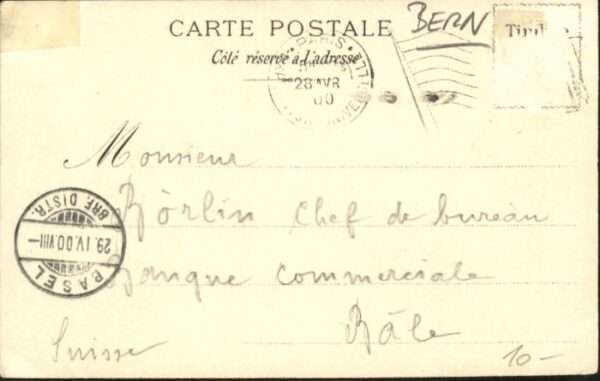 CARTE POSTALE
BERN
Timb
Côté réservé à l'adresse
PARIS
28 AVR
00
Monsieur
Börlin Chef de bureau
Banque Commerciale
Bâle
Suisse
10-
BASEL
29.IV.00.VIII-
BRF. DISTR.